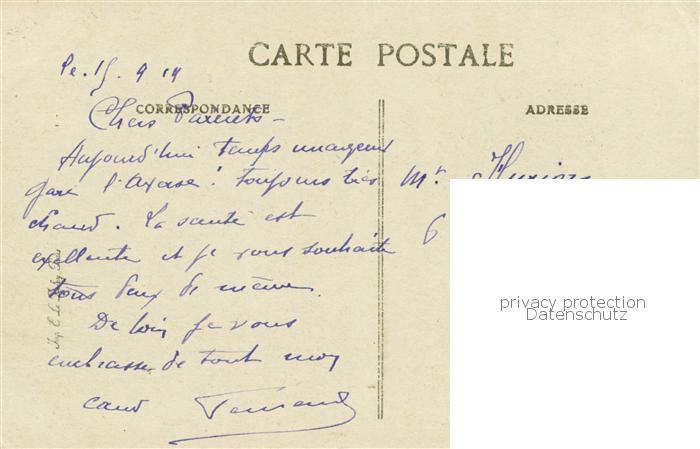 CARTE POSTALE
Le 15. 9 19
CORRESPONDANCE
ADRESSE
Chers Parents -
Aujourd'hui temps nuageux
gare l'averse! toujours très
chaud. La santé est
exellente et je vous souhaite
tous deux de même.
De loin je vous
embrasse de tout mon
cœur Fernand
Mr
6
privacy protection
Datenschutz